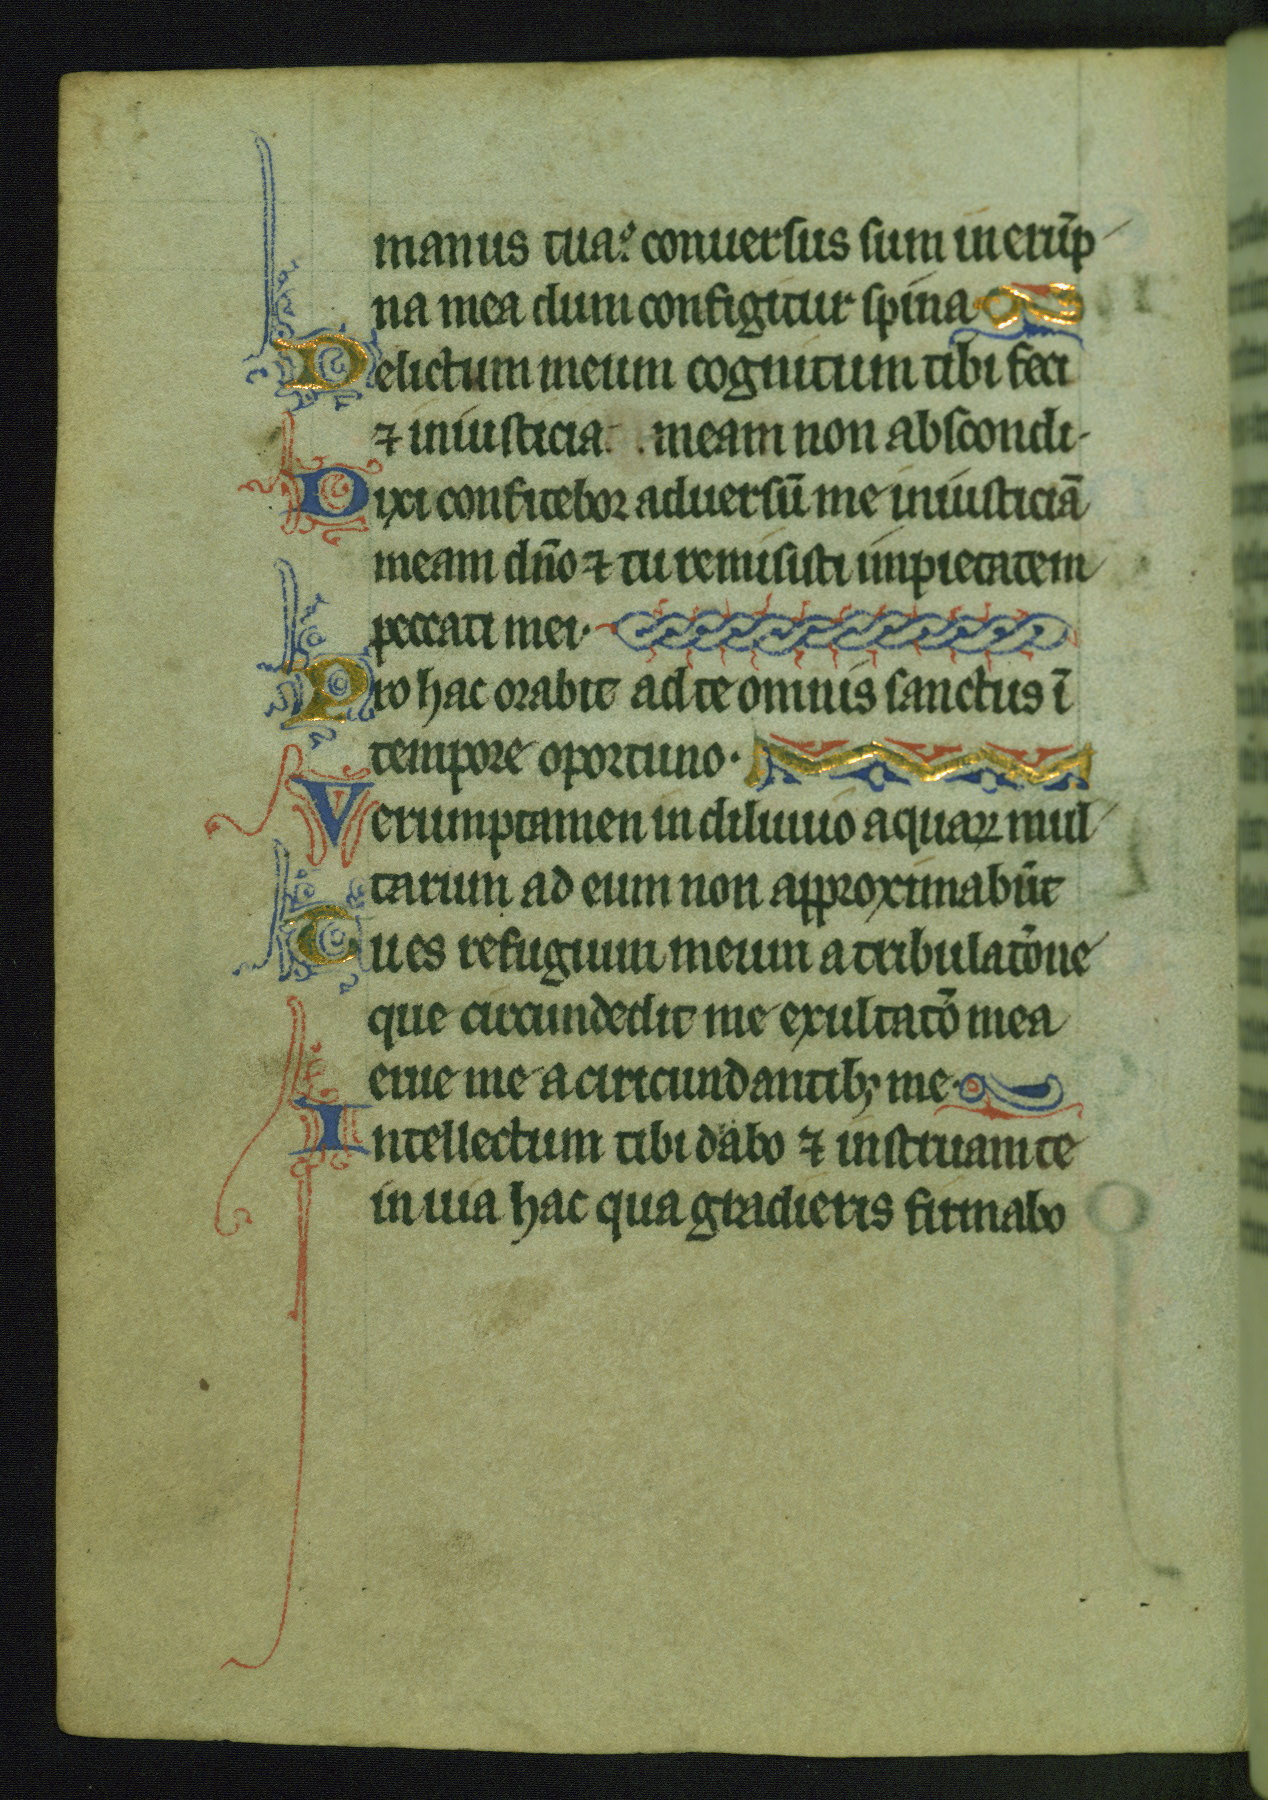 manus tua: conuersus sum in erũp
na mea dum configitur spina
Delictum meum cognitum tibi feci
⁊ iniusticia. . meam non abscondi.
Dixi confitebor aduersũ me iniusticiã
meam dño ⁊ tu remisisti impietatem
peccati mei.
Pro hac orabit ad te omnis sanctus ĩ
tempore oportuno.
Verumptamen in diluuio aquaꝝ mul
tarum ad eum non approximabũt
Tu es refugium meum a tribulatõne
que circundedit me exultatõ mea
erue me a ciricundantibꝫ me.
Intellectum tibi dabo ⁊ instruam te
in uia hac qua gradieris firmabo